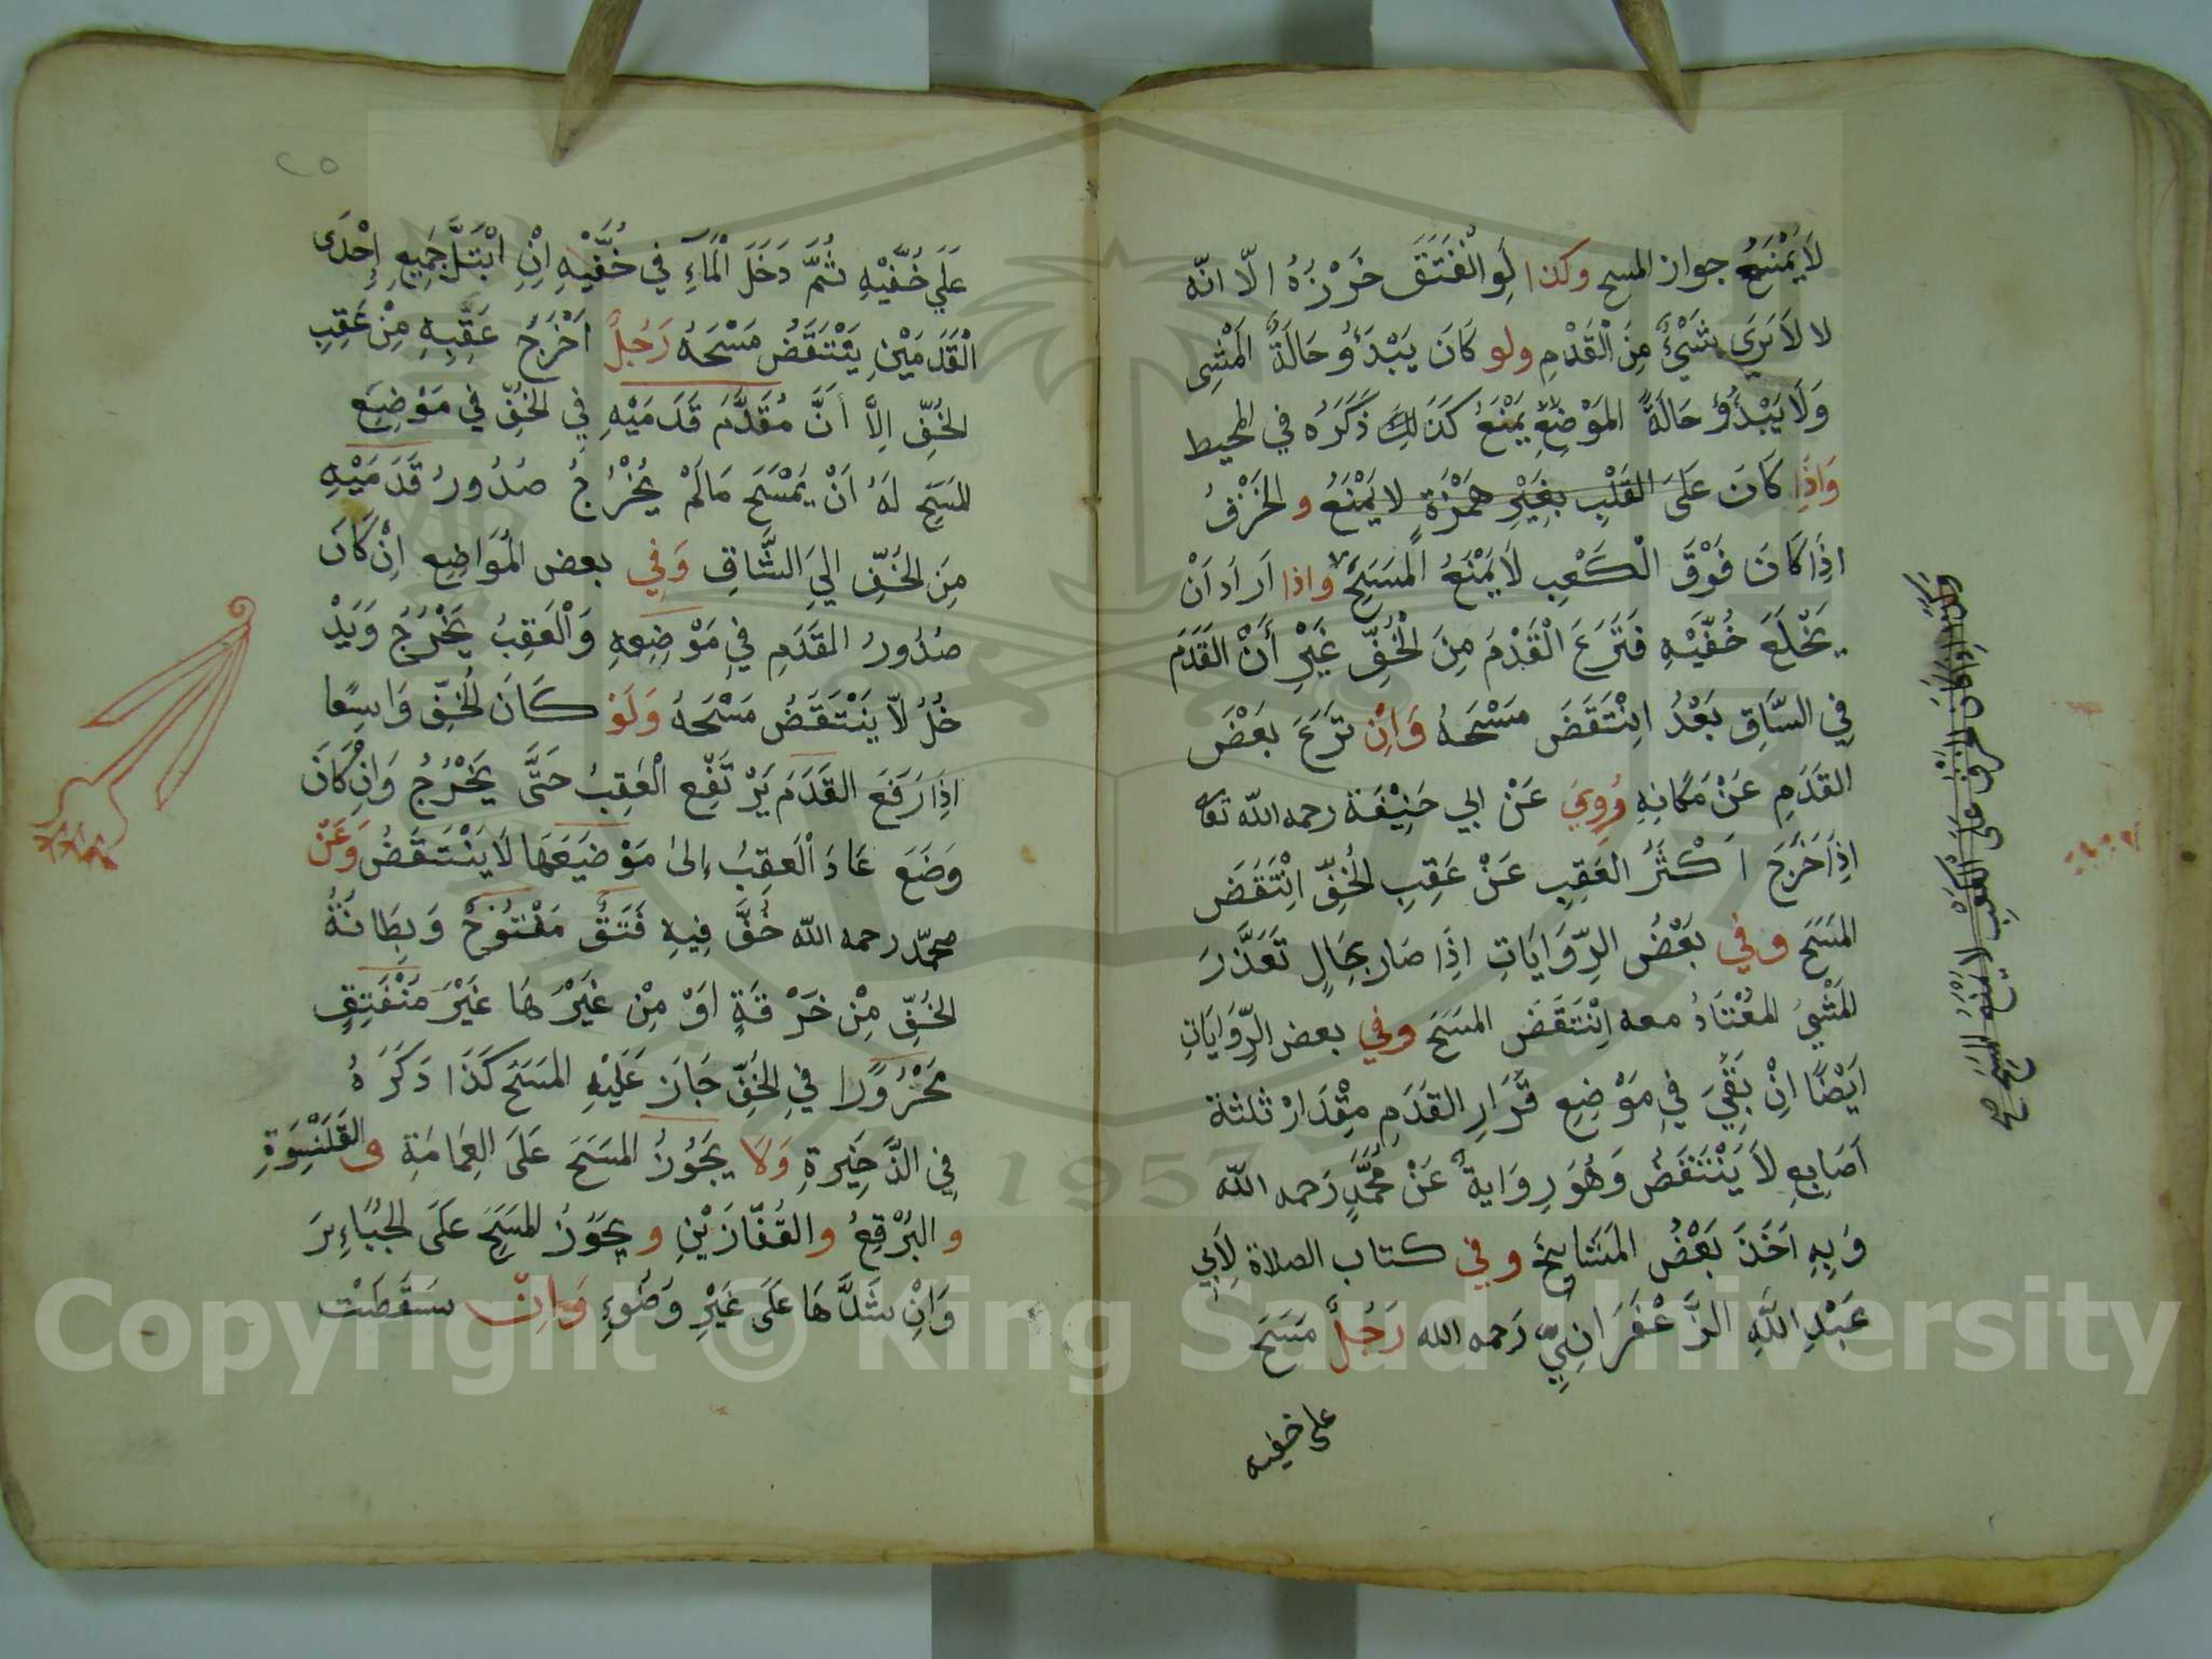 لَا يَمْنَعُ جواز المسح وكذا لَوِ انْفَتَقَ خَرْزُهُ الّا انّه
لا لَا يَرَي شَيْءٌ مِنَ الْقَدْمِ ولو كَانَ يَبْدَؤُ حَالَةَ الْمَشِى
وَلَا يَبْدُؤُ حَالَةً المَوْضِعِ يَمْنَعُ كَذَلِكَ ذَكَرَهُ في المحيط
وَاذَا كَانَ عَلَى القَلْبِ بِغَيْرِ هَمْزَةٍ لا يَمْنَعُ و الخَرْقُ
اذَا كَانَ فَوْقَ الْكَعْبِ لَا يَمْنَعُ الْمَسَحَ واذا اَرَادَ اَنْ
يَخْلَعَ خُفَّيْهِ فَنَزَعَ الْقَدْمَ مِنَ الْخُفِّ غَيْرِ أَنَّ القَدَمَ
فِي السَّاقِ بَعْدُ انْتَقَضَ مَسْحَهُ وَاِنْ نَزَعَ بَعْضَ
القَدَمِ عَنْ مَكَانِهِ رُوِيَ عَنْ ابي حَنِيْفَة رحمه الله تعا
اِذَا خَرَجَ اَكْثَرُ العَقِبِ عَنْ عَقِبِ الخُفِّ انْتَقَضَ
المَسَحَ وفي بَعْضُ الرِّوَايَاتِ اذَا صَار بِحَالٍ تَعَذَّرَ
المَشْيُ المُعْتَادُ معه اِنْتَقَضَ المسَحَ وفي بعض الرِّوَايَاتِ
اَيْضًا اِنْ بَقِيَ فِي مَوْضِعِ قَرَارِ القَدَمِ مِقْدَارْ ثلثة
اَصَابِعِ لاَ يَنْتَقَضُ وَهُوَ رِوَايةٌ عَنْ مُحَمَّدٍ رَحمه الله
وَبِهِ اَخَذَ بَعْضُ المَشَايِخَ وفي كتاب الصلاة لِاَبِي
عَبْدِ اللَّهِ الزَّعْفَرَانِيِّ رَحمه الله رَجُلٌ مَسَحَ
على خفيه
اذَا كَانَ الخرق على العقب لا يمنع المسح صح
٢٥
عَلَي خُفَّيْهِ ثُمَّ دَخَلَ الْمَآءِ فِي خُفَّيْهِ اِنْ ابْتَلَّ جَمِيعِ اِحْدَى
الْقَدَمَيْنِ يَنْتَقَضُ مَسْحَهُ رَجُلٌ اَخْرَجَ عَقِبِهِ مِنْ عَقِبِ
الخُفِّ اِلاَّ أَنَّ مُقَدَّمَ قَدَمَيْهِ فِي الخُفِّ فِي مَوْضِعَ
المَسَحِ لَهُ اَنْ يَمْسَحَ مَالَمْ يَخْرُجُ صُدُورُ قَدَمَيْهِ
مِنَ الخُفِّ اِلَي السَّاقِ وَفِي بعض المَوَاضِعِ اِنْ كَانَ
صُدُورُ القَدَمِ فِي مَوْضِعِهِ وَالْعَقِبُ يَخْرُجُ وَيَدْ
خُلُ لاّ يَنْتَقَضُ مَسْحَهُ وَلَوْ كَانَ الخُفِّ وَاسِعًا
اِذَا رَفَعَ القَدَمَ يَرْتَفِعَ الْعَقِبُ حَتَّى يَخْرُجُ وَاِنْ كَانَ
وَضَعَ عَادَ الْعَقِبُ اِلىٰ مَوْضِعَهَا لَا يَنْتَقَضُ وَعَنْ
محمّد رحمه الله خُفَّ فِيهِ فَتَقٌ مَفْتُوحٌ وَبِطَانَةُ
الخُفِّ مِنْ خَرْقَةٍ اَوْ مِنْ غَيْرِهَا غَيْرَ مُنْفَتِقٍ
مَخْرُوزًا فِي الخُفِّ جَازَ عَلَيْهِ المَسَحَ كَذَا ذَكَرَهُ
فِي الذَّخِيْرَةِ وَلَا يَجُوزُ المَسَحَ عَلَى العِمَامَةِ و القَلَنْسُوَةِ
و البُرْقِعُ و القُفَّازَيْنِ و يَجُوزُ المَسَحَ عَلَى الجَبَاءِيرَ
وَاِنْ شَدَّهَا عَلَى غَيْرِ وَضُوءٍ وَاِنْ سَقَطَتْ
1957
Copyright © King Saud University